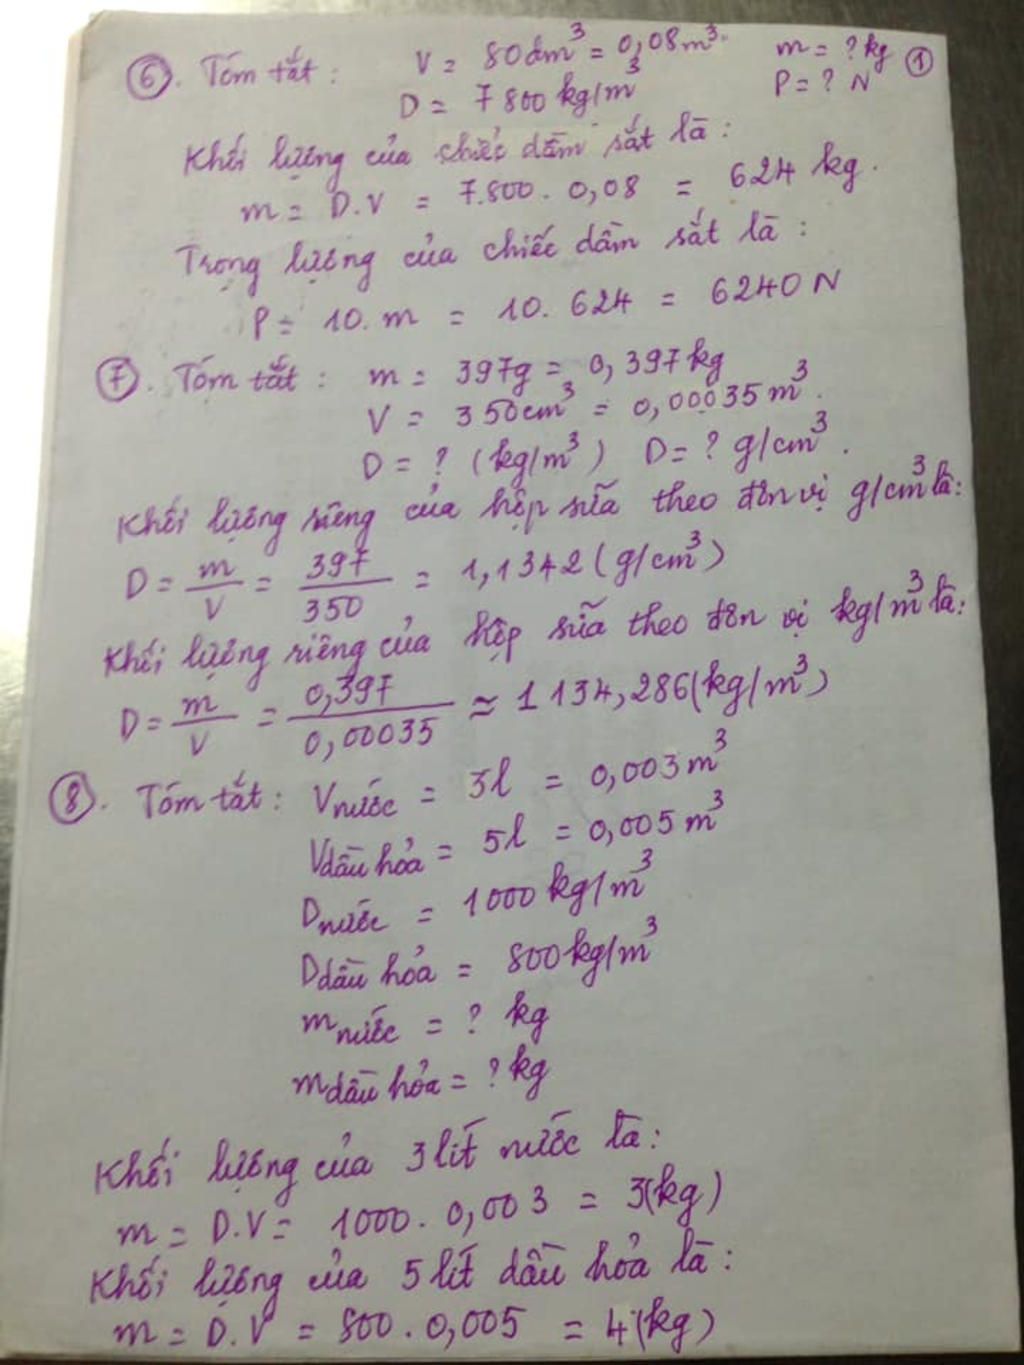 ⑥. Tóm tắt: V = 80dm³ = 0,08m³. m = ? kg ①
D = 7800 kg/m³ P = ? N
Khối lượng của chiếc dầm sắt là:
m = D.V = 7.800 . 0,08 = 624 kg.
Trọng lượng của chiếc dầm sắt là:
P = 10. m = 10. 624 = 6240 N
⑦. Tóm tắt: m = 397g = 0,397kg
V = 350cm³ = 0,00035m³.
D = ? (kg/m³) D = ? g/cm³.
Khối lượng riêng của hộp sữa theo đơn vị g/cm³ là:
D = m/V = 397/350 = 1,1342 (g/cm³)
Khối lượng riêng của hộp sữa theo đơn vị kg/m³ là:
D = m/V = 0,397/0,00035 ≈ 1134,286(kg/m³)
⑧. Tóm tắt: Vnước = 3l = 0,003m³
Vdầu hỏa = 5l = 0,005m³
Dnước = 1000 kg/m³
Ddầu hỏa = 800kg/m³
mnước = ? kg
mdầu hỏa = ? kg
Khối lượng của 3 lít nước là:
m = D.V = 1000. 0,003 = 3(kg)
Khối lượng của 5 lít dầu hỏa là:
m = D.V = 800 . 0,005 = 4(kg)